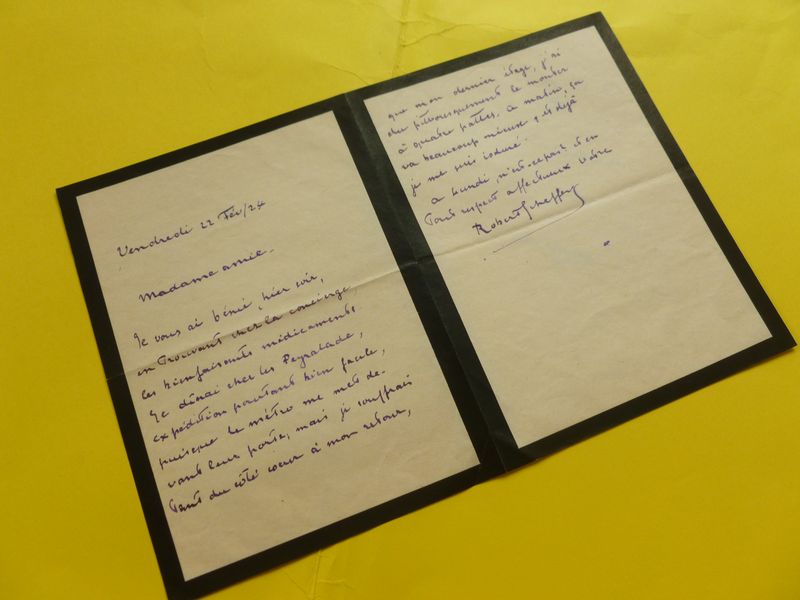 Vendredi 22 Fév/24
Madame amie.
Je vous ai béni, hier soir,
en trouvant chez la concierge,
les bienfaisants médicaments.
Je dînai chez les Peyralade,
expédition pourtant bien facile,
puisque le métro me met de-
vant leur porte, mais je souffrais
tant du côté cœur à mon retour,
que mon dernier étage, j'ai
dû pittoresquement le monter
à quatre pattes. Ce matin, ça
va beaucoup mieux, et déjà
je me suis ioduré.
à Lundi, n'est-ce pas? et en
tout respect affectueux votre
Robert Scheffer